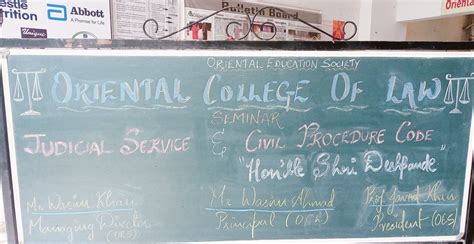 Nestle
Nutrition
Abbott
A Promise for Life
Unique
Bulletin Board
Oriental
ORIENTAL EDUCATION SOCIETY
ORIENTAL COLLEGE OF LAW
SEMINAR
JUDICIAL SERVICE & CIVIL PROCEDURE CODE
"Hon'ble Shri Deshpande"
Mr. Wasim Khan Mr. Wasim Ahmad Prof. Javed Khan
Managing Director Principal (OCL) President (OES)
(OES)